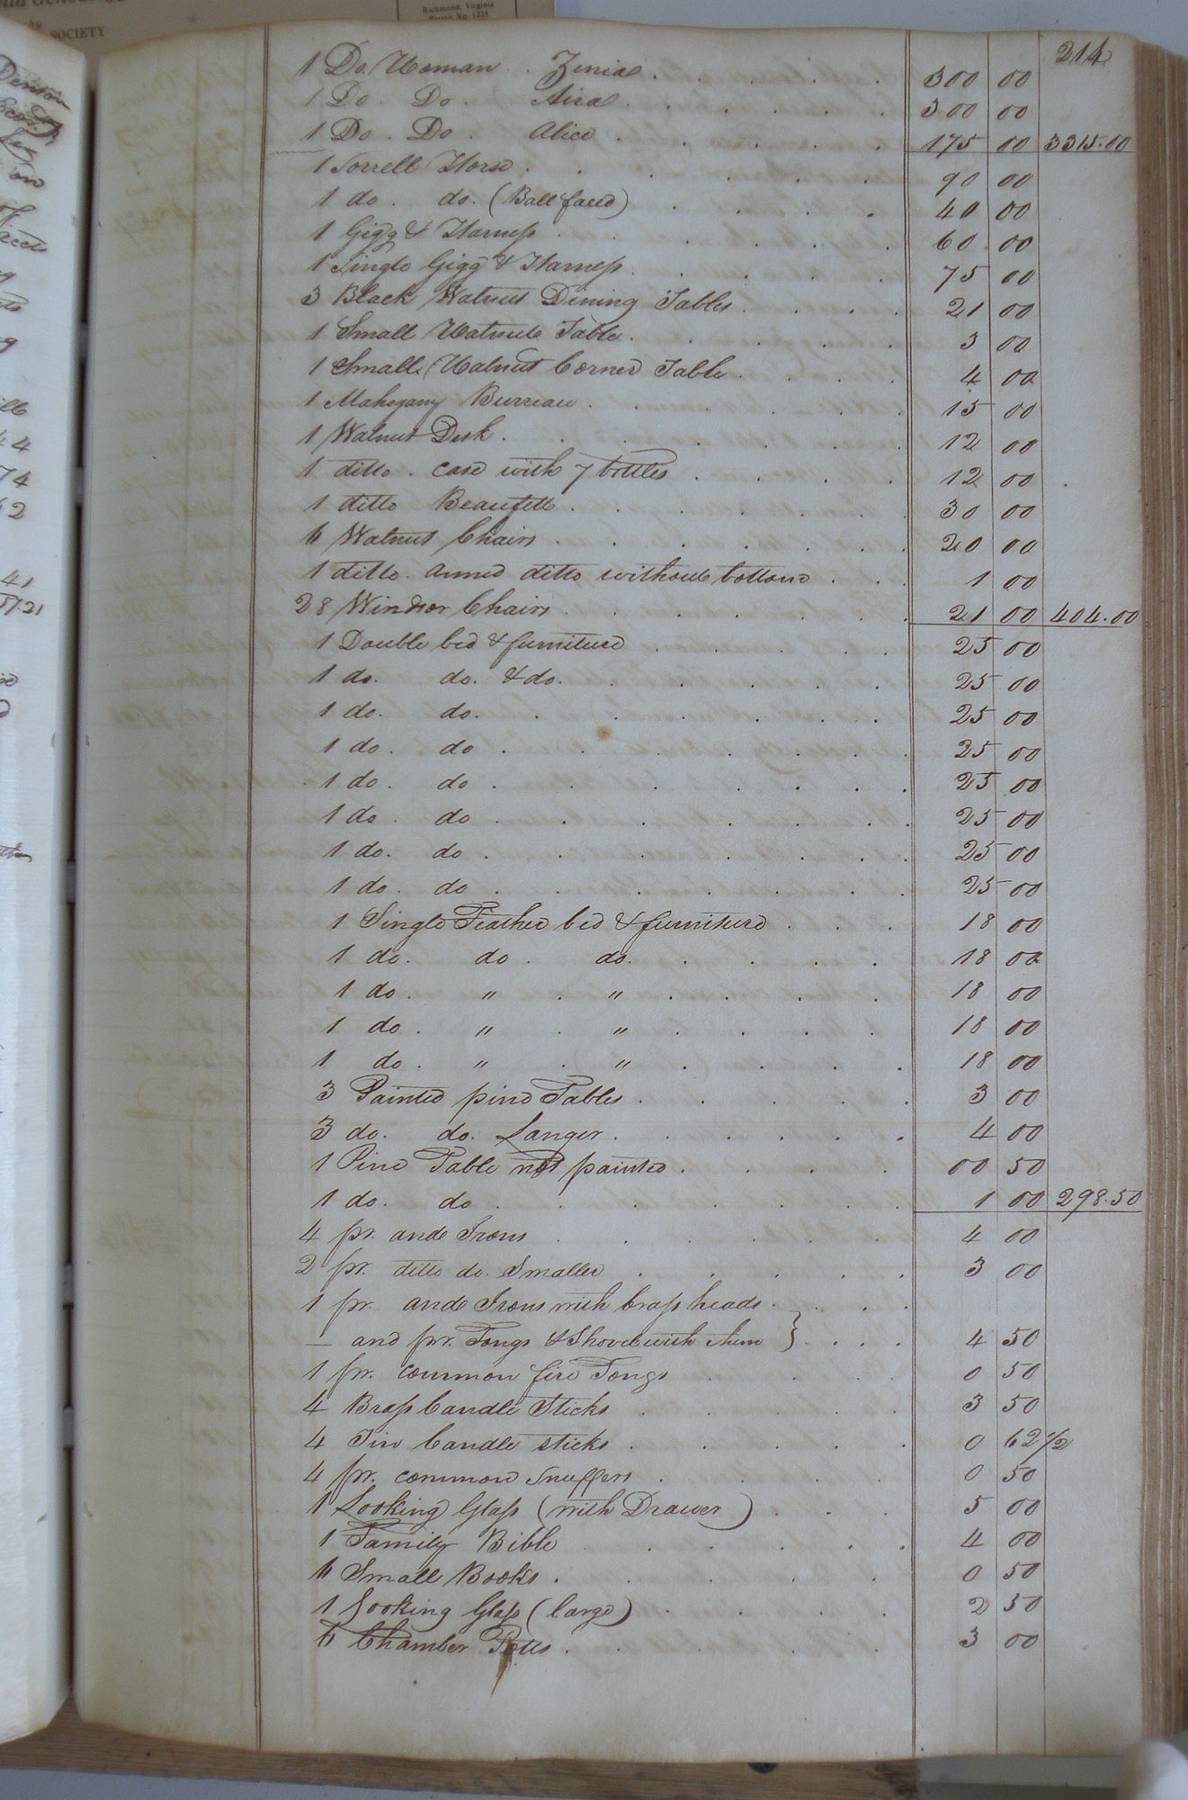 SOCIETY
Richmond, Virginia
Permit No. 1221
214
1 Do. Woman . Zenia . 300 00
1 Do . Do . Aira . 300 00
1 Do . Do . Alice . 175 00 3315.00
1 Sorrell Horse . 90 00
1 do . do. (Ball faced) . 40 00
1 Gigg & Harness . 60 00
1 Single Gigg & Harness . 75 00
3 Black Walnut Dining Tables . 21 00
1 Small Walnut Table . 3 00
1 Small Walnut Corner Table . 4 00
1 Mahogany Burreau . 15 00
1 Walnut Desk . 12 00
1 ditto . case with 7 bottles . 12 00
1 ditto Beaufett . 30 00
6 Walnut Chairs . 20 00
1 ditto . armed ditto without bottom . 1 00
28 Windsor Chairs . 21 00 404.00
1 Double bed & furniture . 25 00
1 do. do. & do. 25 00
1 do. do. 25 00
1 do. do . 25 00
1 do. do . 25 00
1 do . do . 25 00
1 do. do . 25 00
1 do. do . 25 00
1 Single Feather bed & furniture . 18 00
1 do. do . do. 18 00
1 do . " . " . 18 00
1 do . " . " . 18 00
1 do . " . " . 18 00
3 Painted pine Tables . 3 00
3 do. do. Larger . 4 00
1 Pine Table not painted . 00 50
1 do. do . 1 00 298.50
4 pr. ande Irons . 4 00
2 pr. ditto do. Smaller . 3 00
1 pr ande Irons with brass heads .
— and pr. Tongs & Shovel with them } 4 50
1 pr. common fire Tongs . 0 50
4 Brass Candle Sticks . 3 50
4 Tin Candle sticks . 0 62 1/2
4 pr. common Snuffers . 0 50
1 Looking Glass (with Drawer) . 5 00
1 Family Bible . 4 00
6 Small Books . 0 50
1 Looking Glass (large) . 2 50
6 Chamber Potts . 3 00